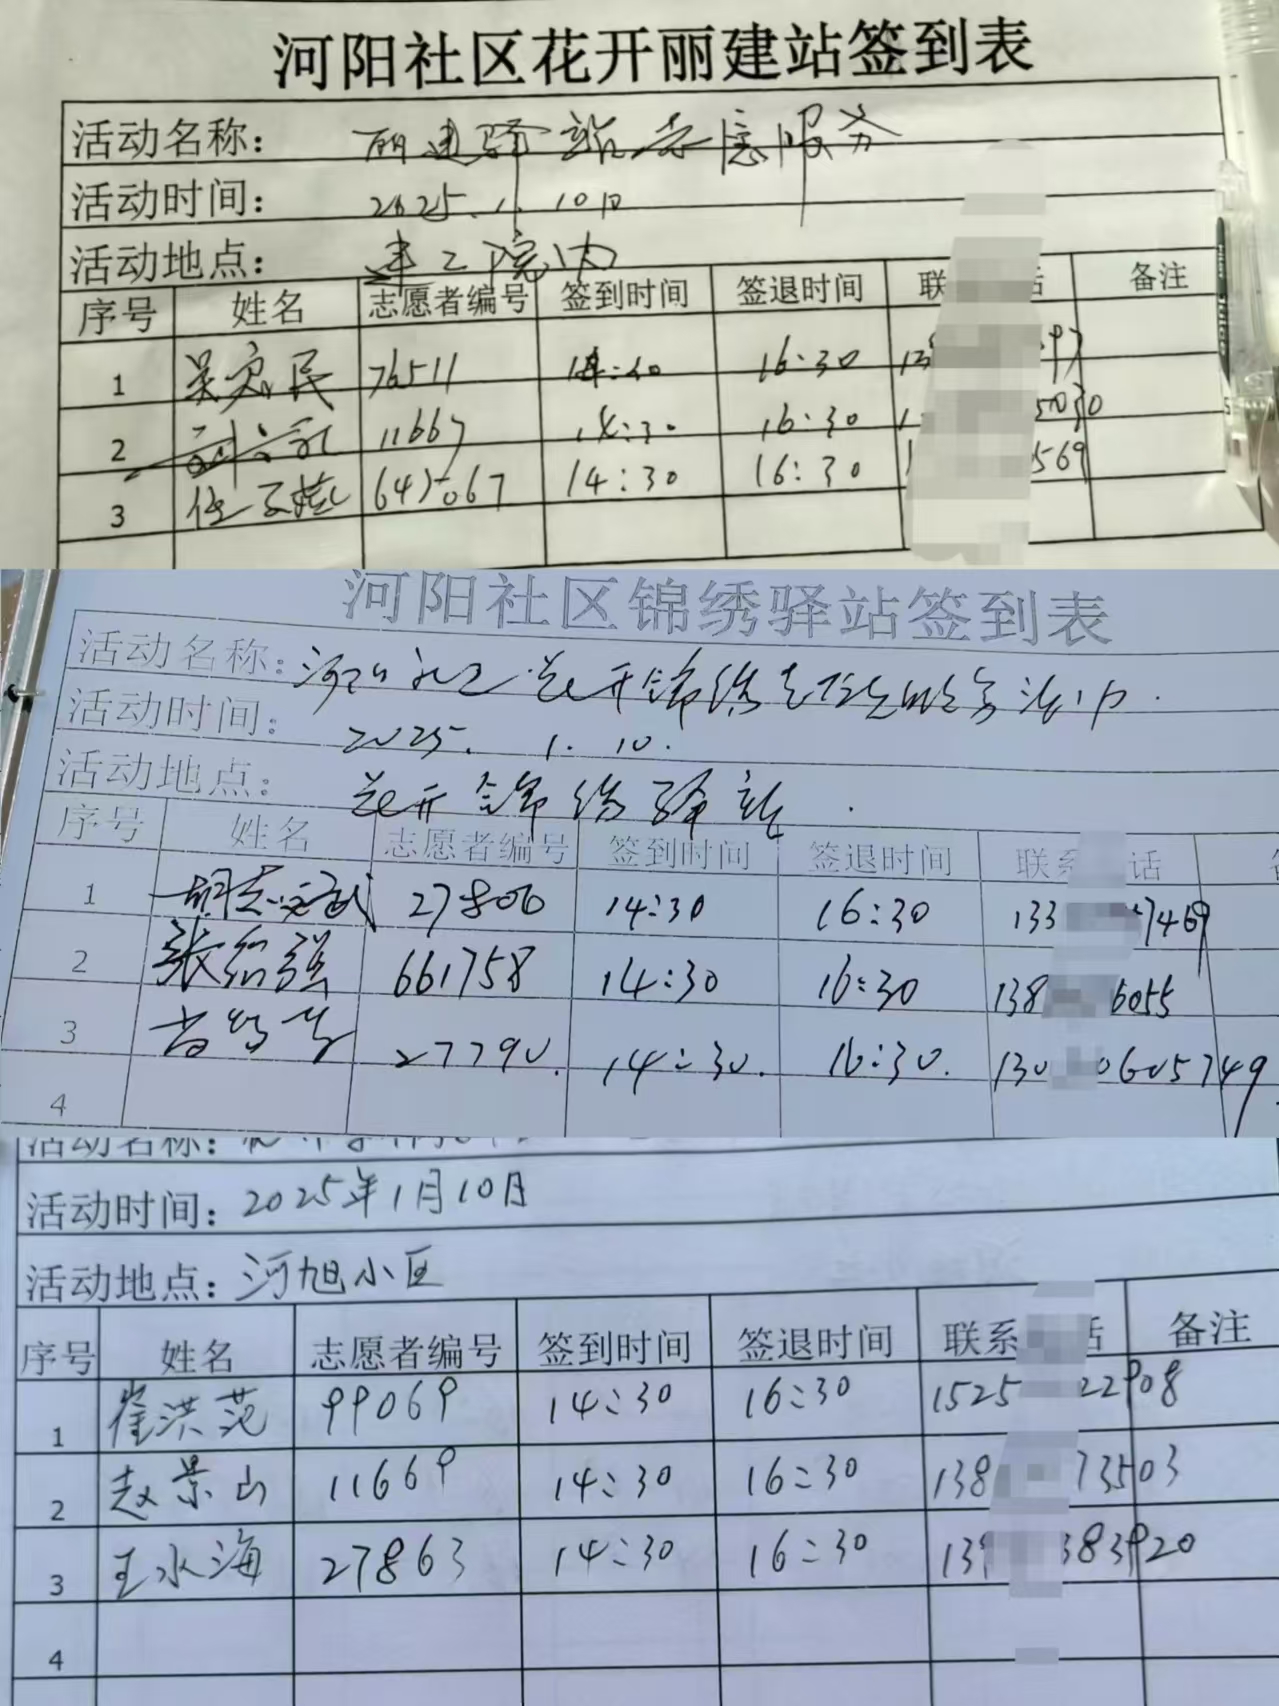 河阳社区花开丽建站签到表
活动名称： 丽建驿站志愿服务
活动时间： 2025.1.10日
活动地点： 建工院内
序号 姓名 志愿者编号 签到时间 签退时间 联 话 备注
1 76511 16:30
2 11667 14:30 16:30 5030
3 14:30 16:30 569
河阳社区锦绣驿站签到表
活动名称： 河阳社区花开锦绣
活动时间： 2025. 1. 10.
活动地点： 花开锦绣驿站
序号 姓名 志愿者编号 签到时间 签退时间 联系 话
1 27806 14:30 16:30 133 7469
2 张绍强 661758 14:30 16:30 138 6055
3 27790. 14:30. 16:30. 130 0605749
4
活动名称：
活动时间：2025年1月10日
活动地点：河旭小区
序号 姓名 志愿者编号 签到时间 签退时间 联系 话 备注
1 崔洪范 99069 14:30 16:30 1525 22908
2 赵景山 11669 14:30 16:30 138 73503
3 王水海 27863 14:30 16:30 139 383920
4